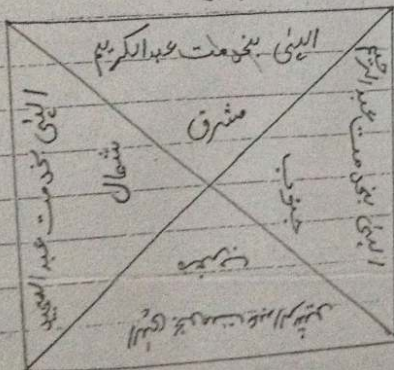 الہٰی بخدمت عبدالکریم
مشرق
الہٰی بخدمت عبدالرحیم
جنوب
مغرب
الہٰی بخدمت عبدالرشید
شمال
الہٰی بخدمت